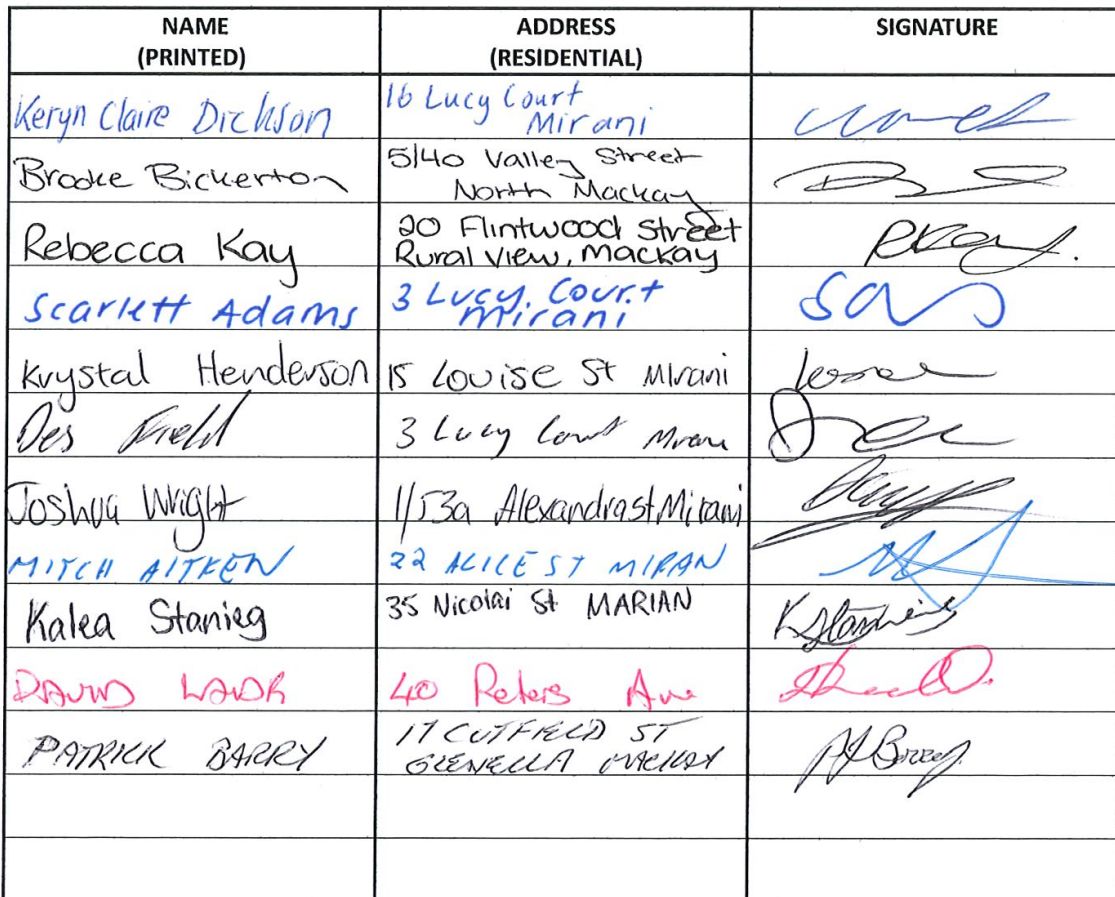 NAME
(PRINTED)
ADDRESS
(RESIDENTIAL)
SIGNATURE
Keryn Claire Dickson
16 Lucy Court
Mirani
Brooke Bickerton
5/40 Valley Street
North Mackay
Rebecca Kay
20 Flintwood Street
Rural View, Mackay
RKay.
Scarlett Adams
3 Lucy. Court
Mirani
Krystal Henderson
15 Louise St Mirani
Des Field
3 Lucy Court Mirani
Joshua Wright
1/53a Alexandra st Mirani
MITCH AITKEN
22 ALICE ST MIRAN
Kalea Stanieg
35 Nicolai St MARIAN
DAVID
40 Peters Ave
PATRICK BARRY
17 CUTFIELD ST
GLENELLA MACKAY
PJBarry